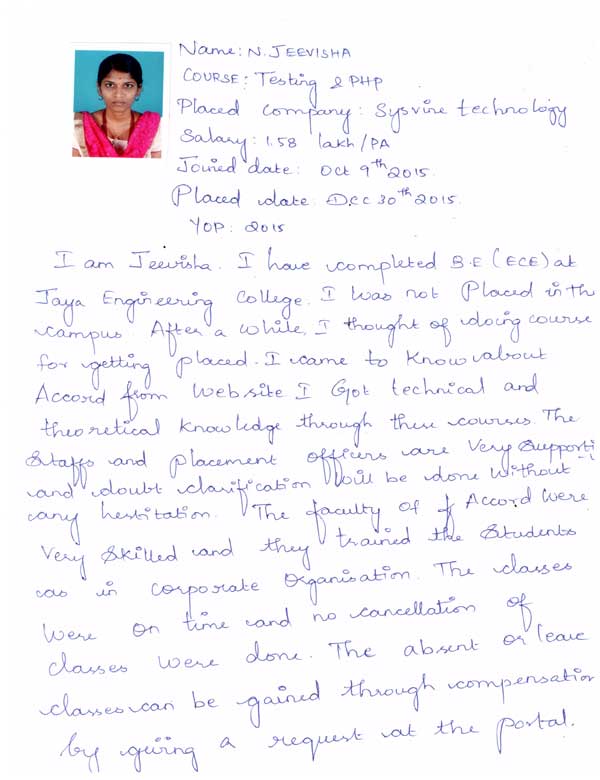 Name: N. JEEVISHA
COURSE: Testing & PHP
Placed company: Sysvine technology
Salary: 1.58 lakh/PA
Joined date: Oct 9th 2015.
Placed date: Dec 30th 2015.
YOP: 2015
I am Jeevisha. I have completed B.E (ECE) at
Jaya Engineering College. I was not Placed in th
campus After a while, I thought of doing course
for getting placed. I came to know about
Accord from website I Got technical and
theoretical knowledge through these courses. The
Staffs and placement officers are very supporti
and doubt clarification will be done without
any hestitation. The faculty of f Accord were
very skilled and they trained the students
as in corporate Organisation. The classes
were on time and no cancellation of
classes were done. The absent or leave
classes can be gained through compensation
by giving a request at the portal.